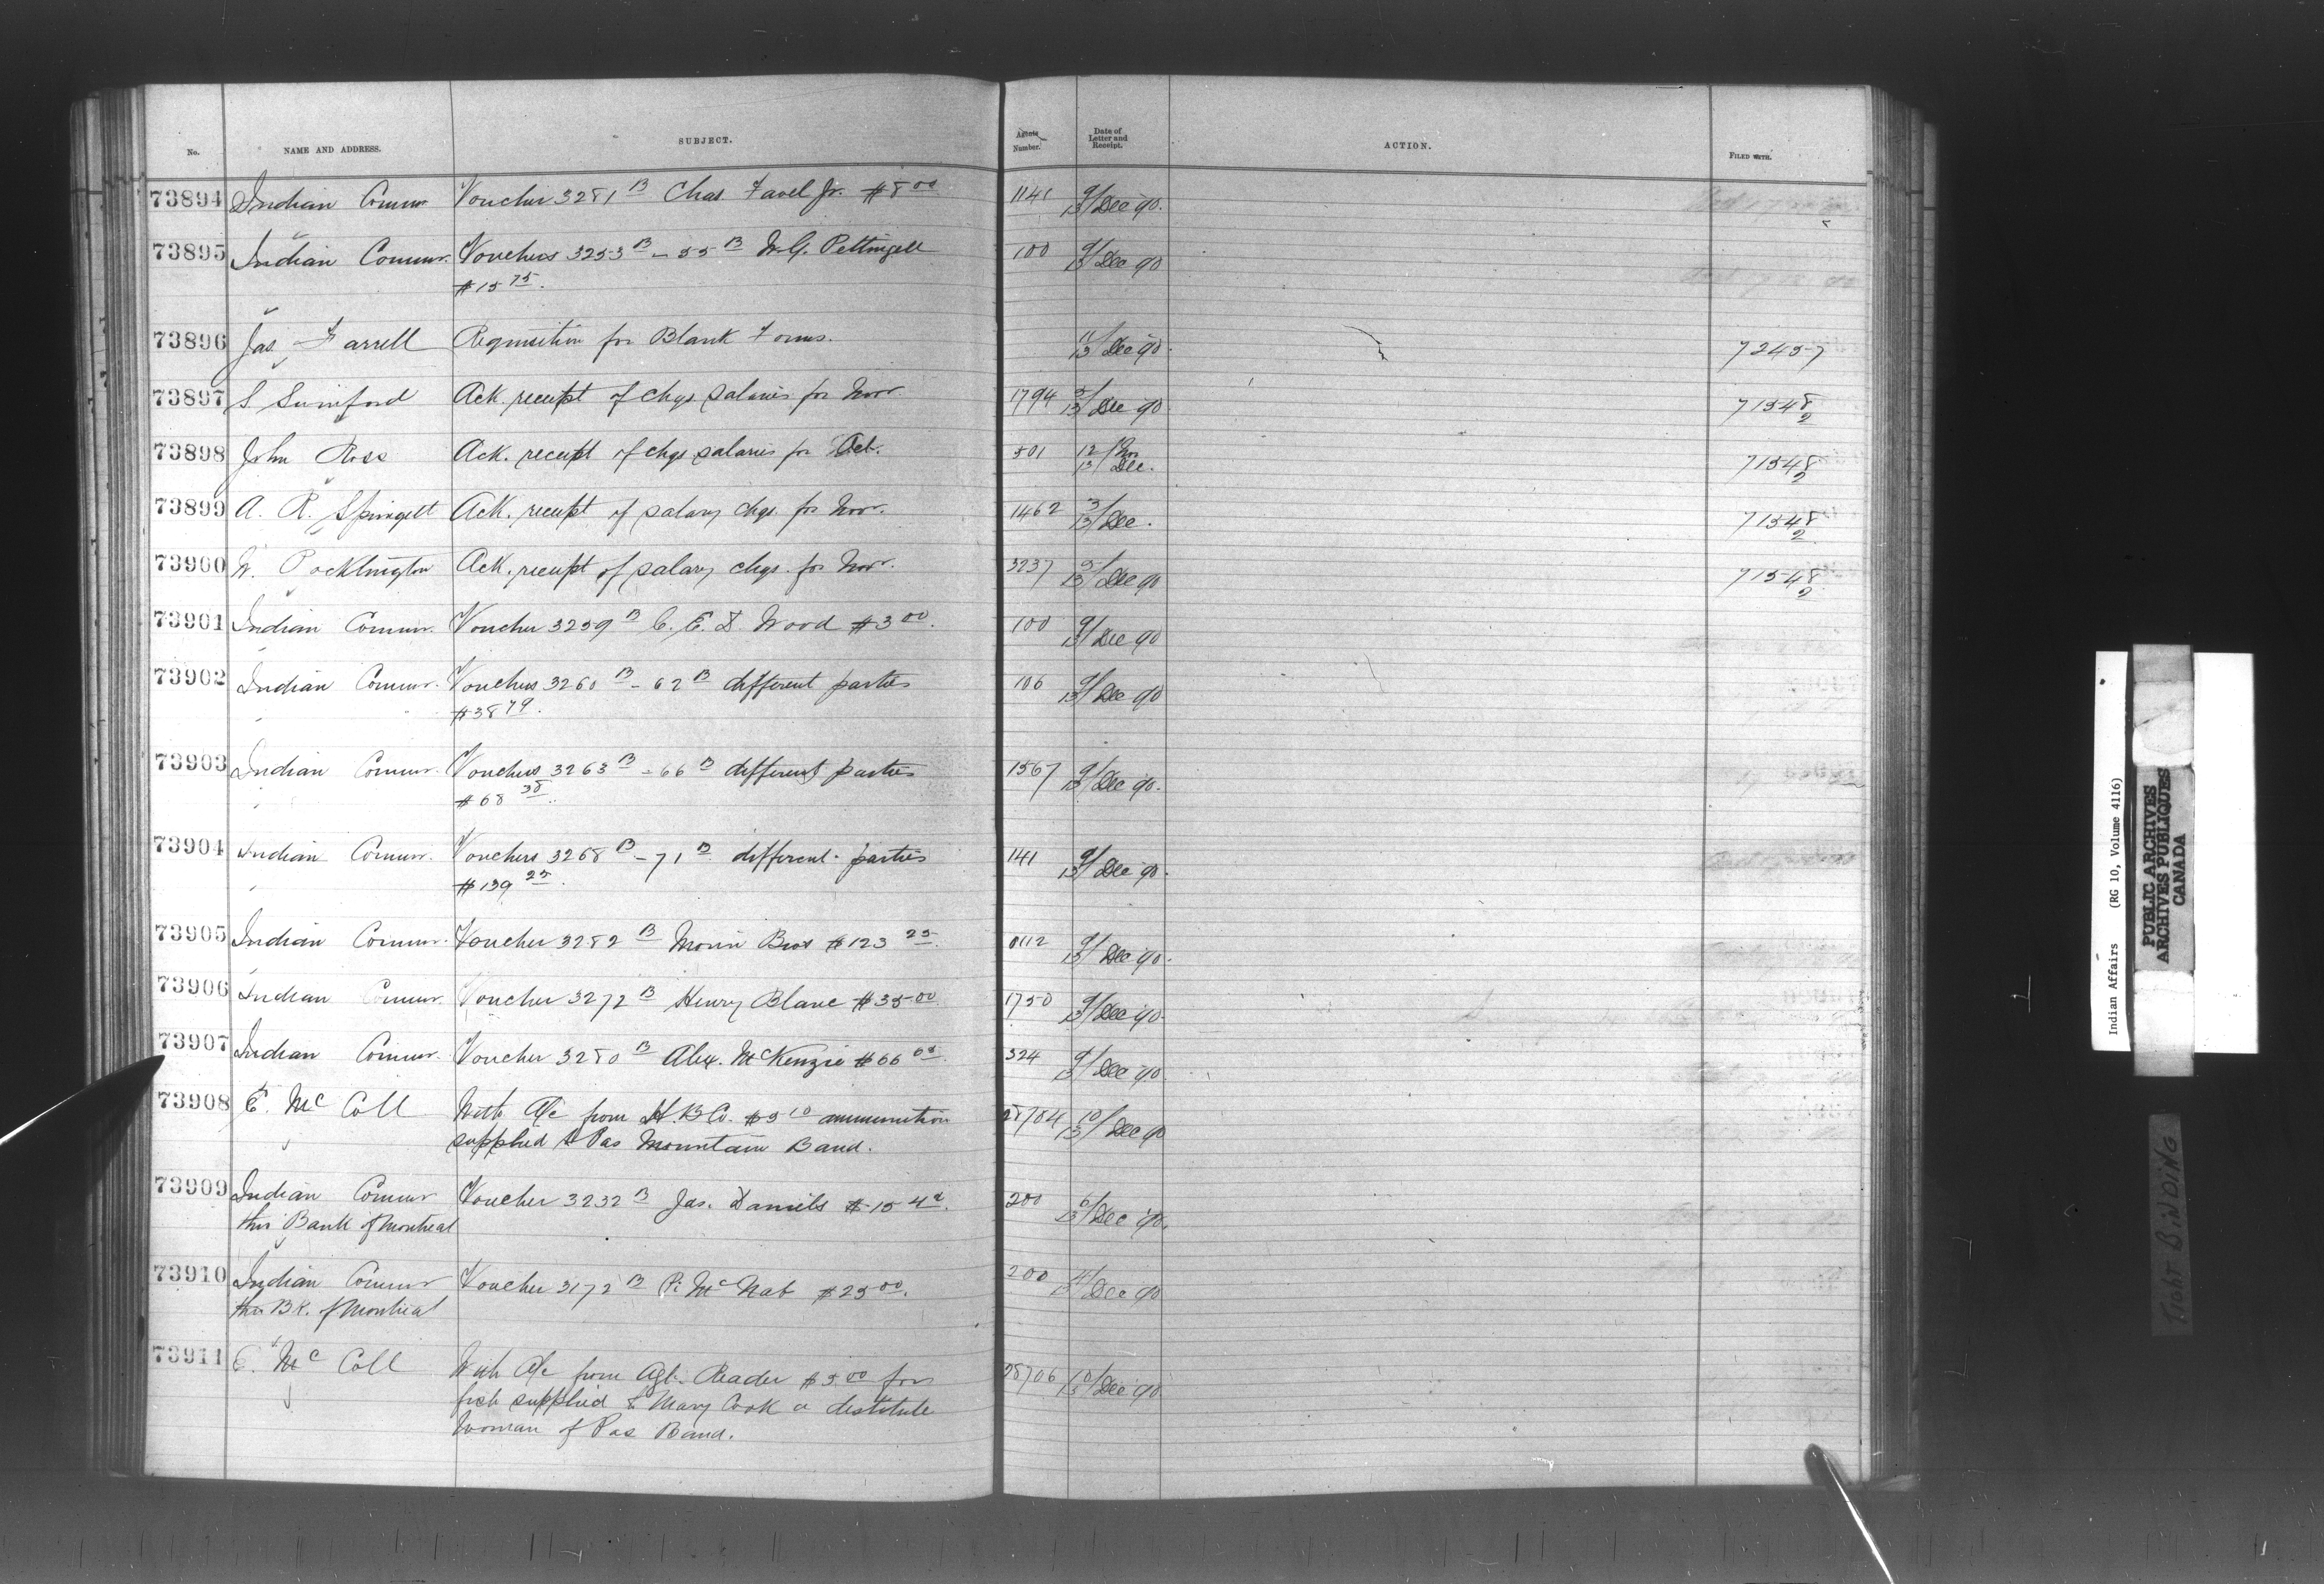 No. NAME AND ADDRESS. SUBJECT. Agents Number. Date of Letter and Receipt. ACTION. FILED WITH.
73894 Indian Commr. Voucher 3281 B Chas. Favel Jr. $8 00 1141 9/13 Dec 90.
73895 Indian Commr. Vouchers 3253 B - 55 B W.G. Pettingell 100 9/13 Dec 90
$15 75.
73896 Jas. Farrell Requisition for Blank Forms. 11/13 Dec 90. 72457
73897 S Swinford Ack receipt of chqs salaries for Novr 1794 5/13 Dec 90 71548/2
73898 John Ross Ack. receipt of chqs salaries for Oct. 501 12/Nov 13/Dec. 71548/2
73899 A. R. Springett Ack. receipt of salary chqs. for Novr. 1462 3/13 Dec. 71548/2
73900 W. Pocklington Ack. receipt of salary chqs. for Novr. 3237 5/13 Dec 90 71548/2
73901 Indian Commr. Voucher 3259 B C. E. D. Wood $3 00. 100 9/13 Dec 90
73902 Indian Commr. Vouchers 3260 B - 62 B different parties 106 9/13 Dec 90
$38 79.
73903 Indian Commr. Vouchers 3263 B - 66 B different parties 1567 9/13 Dec 90.
$68 38.
73904 Indian Commr. Vouchers 3268 B - 71 B different parties 141 9/13 Dec 90.
$139 25.
73905 Indian Commr. Voucher 3282 B Morin Bros $123 25. 9/13 Dec 90.
73906 Indian Commr. Voucher 3272 B Henry Blanc $35 00. 1750 9/13 Dec 90
73907 Indian Commr. Voucher 3280 B Alex. McKenzie $66 324 9/13 Dec 90
73908 E. McColl With A/c from H.B.Co. $5 10 ammunition 28704 10/13 Dec 90
supplied to Pas Mountain Band.
73909 Indian Commr Voucher 3232 B Jas. Daniels $15 200 6/13 Dec 90.
thro' Bank of Montreal
73910 Indian Commr Voucher 3172 B P. McNab $25 00. 200 4/13 Dec 90
thro Bk. of Montreal
73911 E. McColl With A/c from Agt. Reader $5.00 for 28706 10/13 Dec 90
fish supplied to Mary Cook a destitute
Woman of Pas Band.
Indian Affairs (RG 10, Volume 4116)
PUBLIC ARCHIVES
ARCHIVES PUBLIQUES
CANADA
Tight BINDING